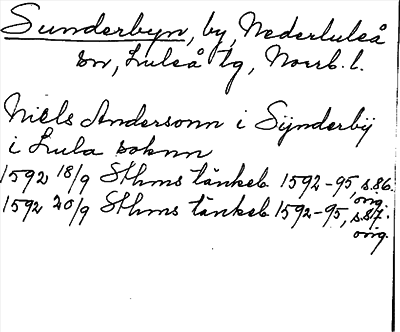 Sunderbyn, by, Nederluleå
sn, Luleå tg, Norrb. l.
Niels Andersonn i Sÿnderbÿ
i Lula soknn
1592 18/9 Sthms tänkeb. 1592-95, s.86.
orig.
1592 20/9 Sthms tänkeb. 1592-95, s.87.
orig.